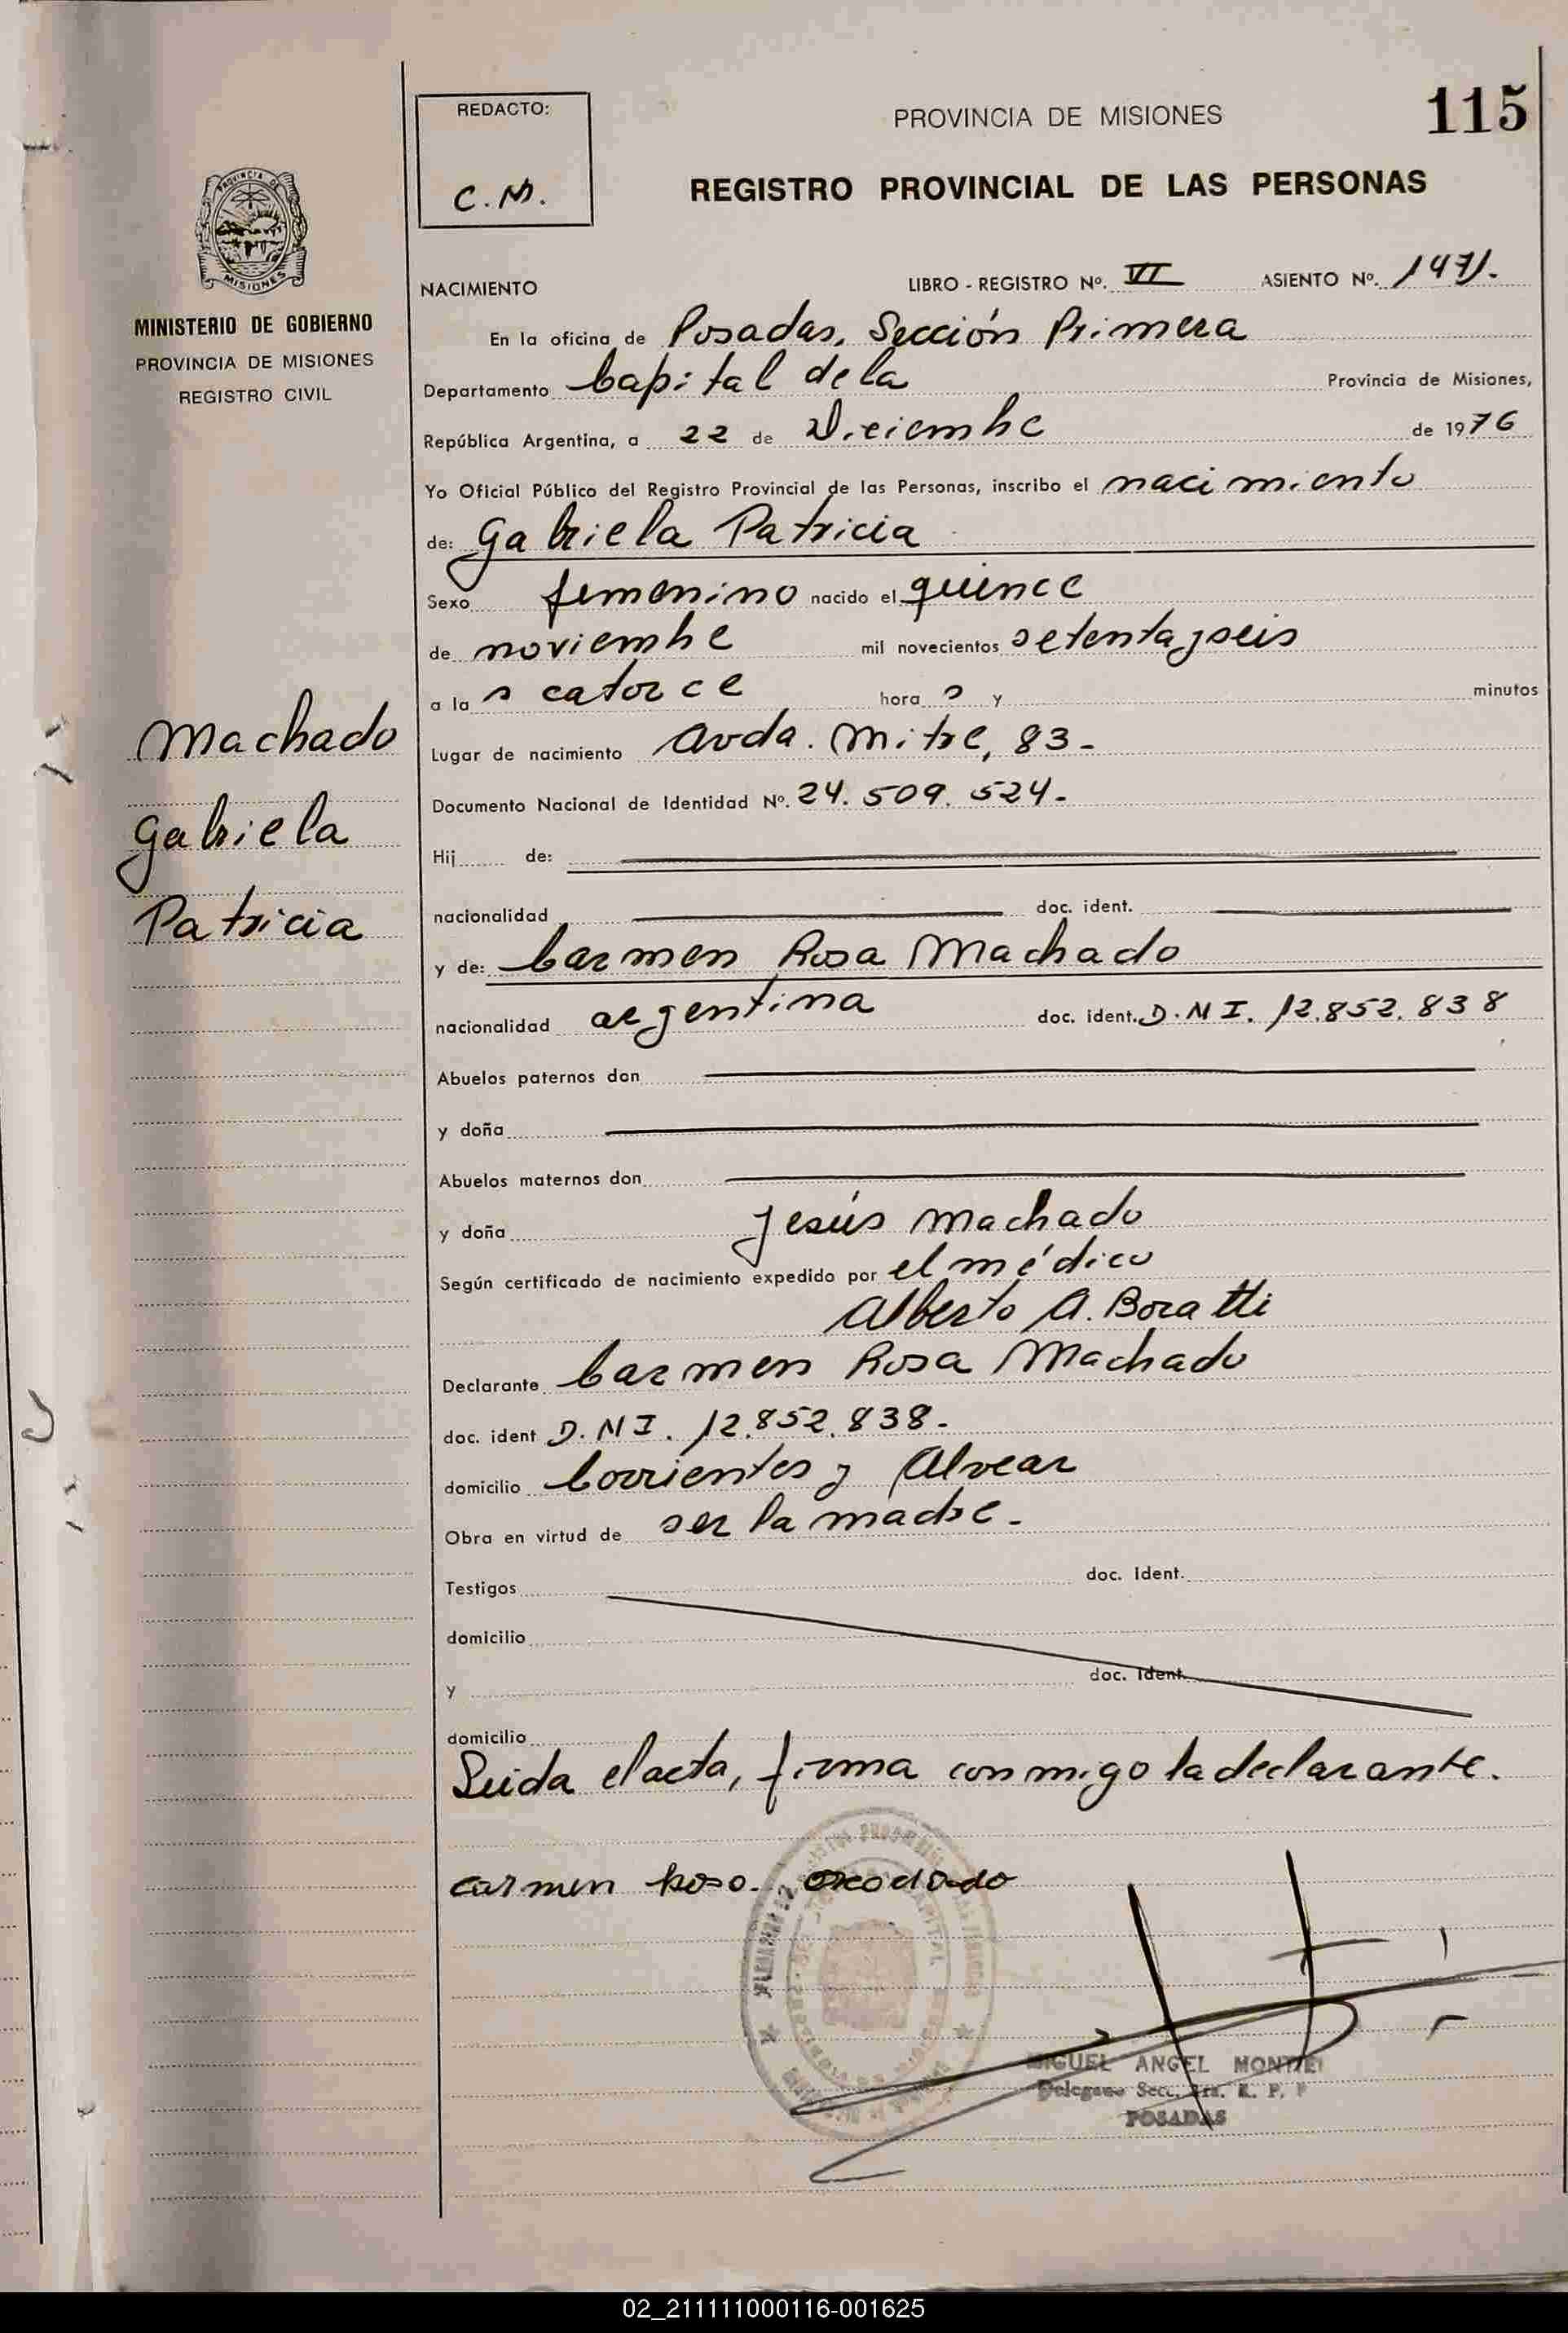 115
REDACTO:
C.M.
PROVINCIA DE MISIONES
REGISTRO PROVINCIAL DE LAS PERSONAS
PROVINCIA DE
MISIONES
MINISTERIO DE GOBIERNO
PROVINCIA DE MISIONES
REGISTRO CIVIL
Machado
Gabriela
Patricia
NACIMIENTO LIBRO - REGISTRO Nº. VI ASIENTO Nº. 1471.
En la oficina de Posadas, Sección Primera
Departamento Capital de la Provincia de Misiones,
República Argentina, a 22 de Diciembre de 1976
Yo Oficial Público del Registro Provincial de las Personas, inscribo el nacimiento
de: Gabriela Patricia
Sexo femenino nacido el quince
de noviembre mil novecientos setenta y seis
a la s catorce hora s y minutos
Lugar de nacimiento Avda. Mitre, 83-
Documento Nacional de Identidad Nº. 24.509.524-
Hij de:
nacionalidad doc. ident.
y de: Carmen Rosa Machado
nacionalidad argentina doc. ident. D.N.I. 12.852.838
Abuelos paternos don
y doña
Abuelos maternos don
y doña Jesús Machado
Según certificado de nacimiento expedido por el médico
Alberto A. Boratti
Declarante Carmen Rosa Machado
doc. ident D.N.I. 12.852.838-
domicilio Corrientes y Alvear
Obra en virtud de ser la madre-
Testigos doc. Ident.
domicilio
y doc. Ident.
domicilio
Leida el acta, firma conmigo la declarante.
Carmen Rosa Machado
MIGUEL ANGEL MONTIEL
Delegado Secc. 1ra. R. P. P
POSADAS
02_211111000116-001625